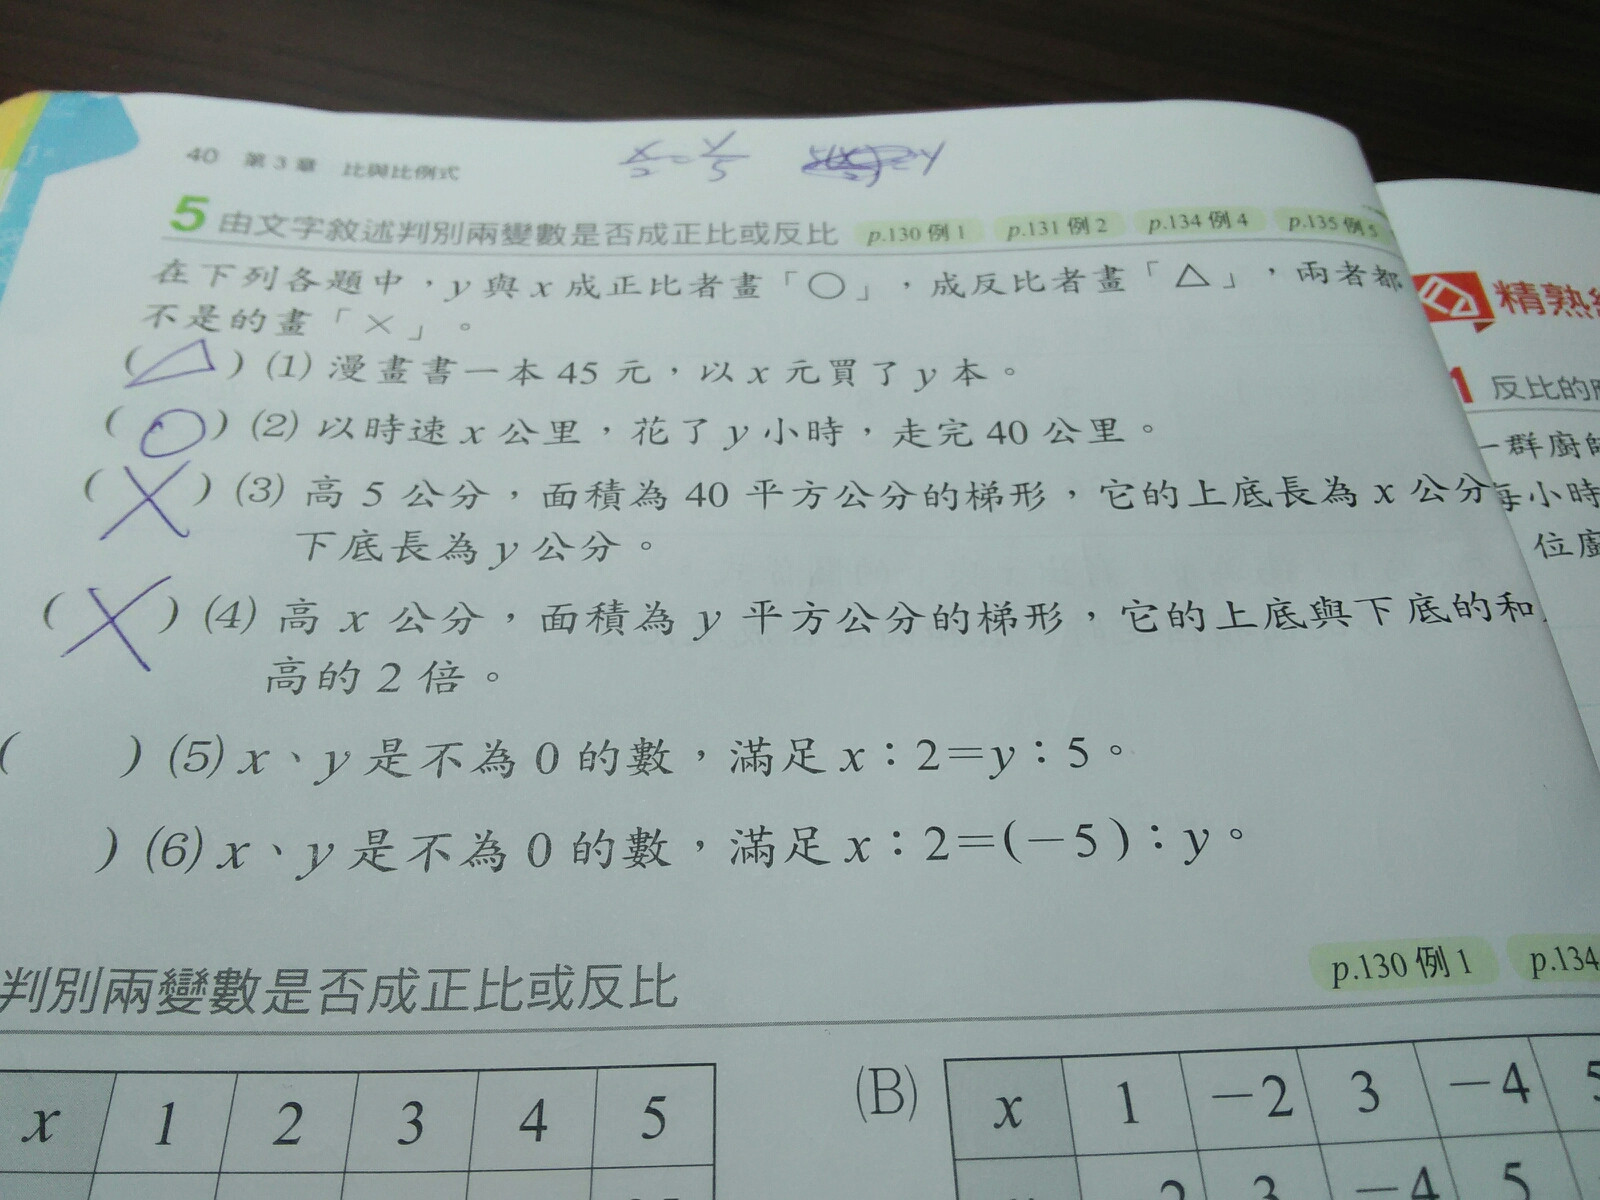 40 第3章 比與比例式
x/2 = y/5
5 由文字敘述判別兩變數是否成正比或反比 p.130 例1 p.131 例2 p.134 例4 p.135 例5
在下列各題中，y與x成正比者畫「○」，成反比者畫「△」，兩者都
不是的畫「×」。
(△) (1) 漫畫書一本45元，以x元買了y本。
(○) (2) 以時速x公里，花了y小時，走完40公里。
(×) (3) 高5公分，面積為40平方公分的梯形，它的上底長為x公分
下底長為y公分。
(×) (4) 高x公分，面積為y平方公分的梯形，它的上底與下底的和
高的2倍。
( ) (5) x、y是不為0的數，滿足x：2=y：5。
) (6) x、y是不為0的數，滿足x：2=(-5)：y。
判別兩變數是否成正比或反比 p.130 例1 p.134
x 1 2 3 4 5
(B) x 1 -2 3 -4 5
2 3 -4 5
精熟
1 反比的
一群廚
每小時
位